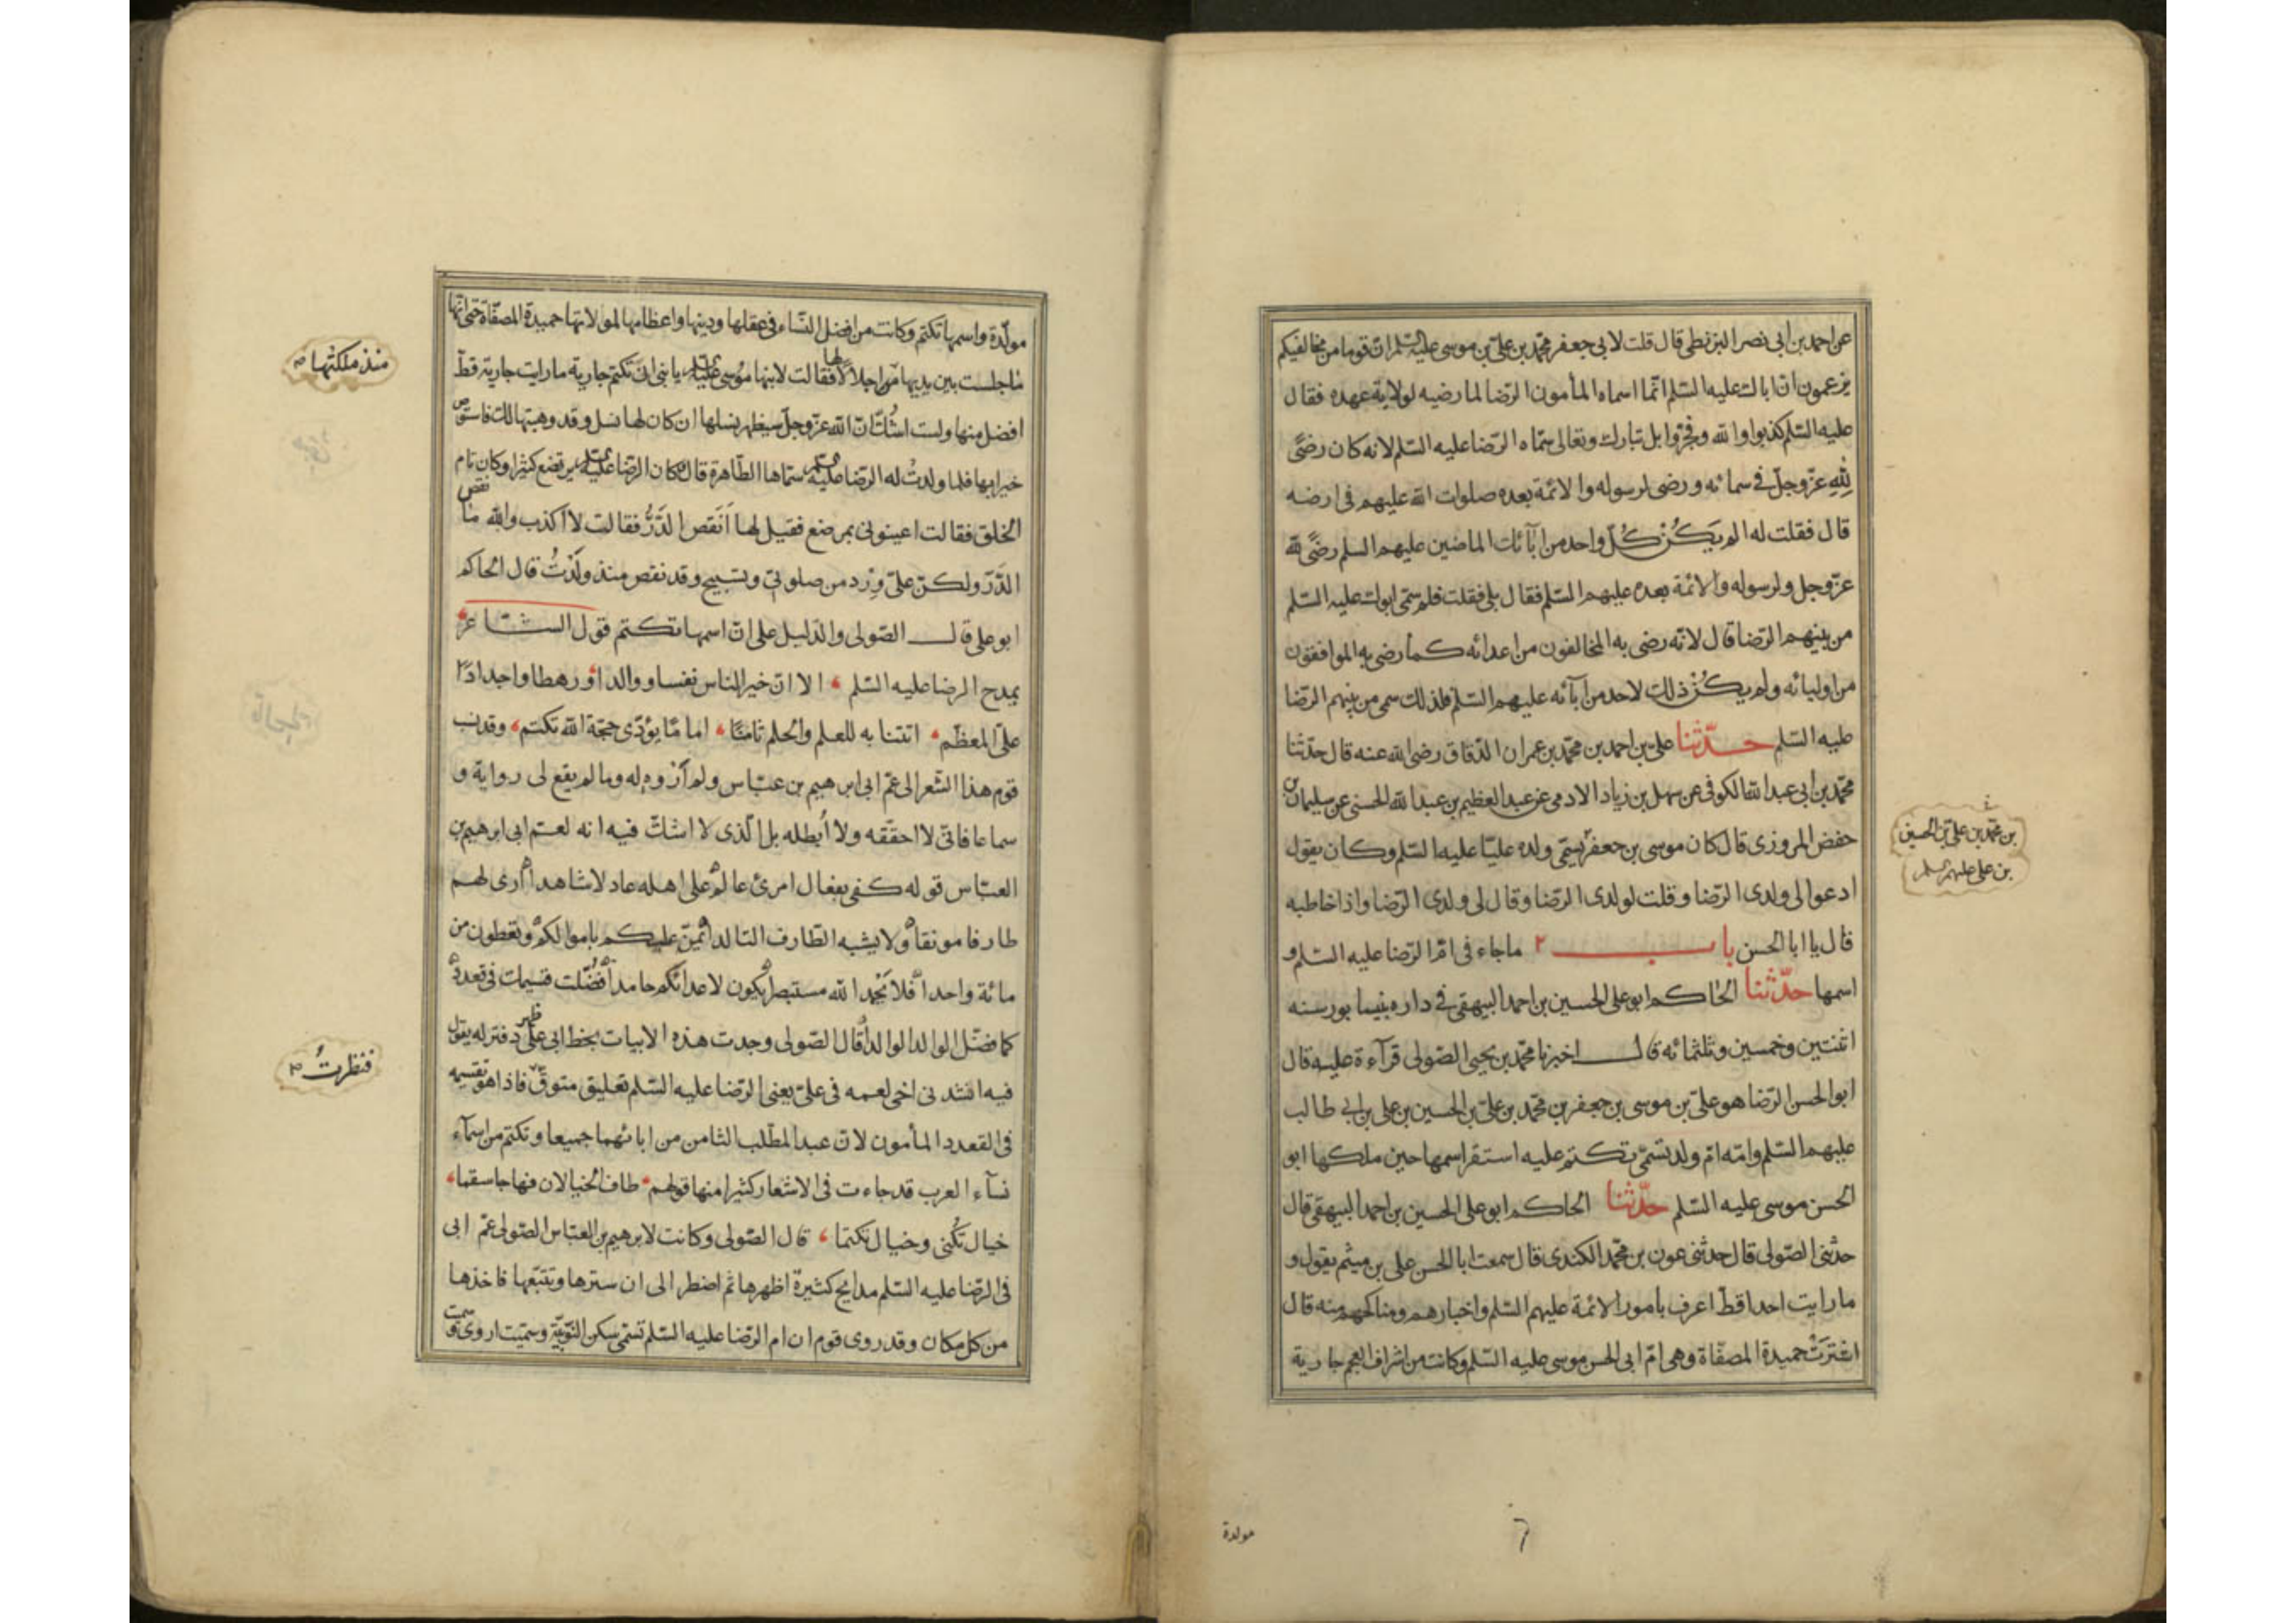 عن احمد بن ابى نصر البزنطى قال قلت لابى جعفر محمّد بن علىّ بن موسى عليه السّلم انّ قوما من مخالفيكم
يزعمون انّ اباك عليه السّلم انّما اسماه المأمون الرّضا لما رضيه لولاية عهده فقال
عليه السّلم كذبوا والله وفجروا بل تبارك وتعالى سمّاه الرّضا عليه السّلم لانه كان رضىً
لِلّهِ عزّ وجلّ فى سمائه ورضى لرسوله والائمة بعده صلوات الله عليهم فى ارضه
قال فقلت له الم يَكُنْ كُلّ واحد من آبائك الماضين عليهم السلم رضىً لله
عزّ وجل ولرسوله والائمة بعده عليهم السّلم فقال بلى فقلت فلم سمّى ابوك عليه السّلم
من بينهم الرّضا قال لانّه رضى به المخالفون من اعدائه كما رضى به الموافقون
من اوليائه ولم يكُنْ ذلك لاحد من آبائه عليهم السّلم فلذلك سمى من بينهم الرّضا
عليه السّلم حدّثنا علىّ بن احمد بن محمّد بن عمران الدّقاق رضى الله عنه قال حدّثنا
محمّد بن ابى عبد الله الكوفى عن سهل بن زياد الادمى عن عبد العظيم بن عبد الله الحسنى عن سليمان بن
حفص المروزى قال كان موسى بن جعفر يسمّى ولده عليّا عليه السّلم وكان يقول
بن محمّد بن علىّ بن الحسين
بن على عليهم السلم
ادعوا لى ولدى الرّضا وقلت لولدى الرّضا وقال لى ولدى الرّضا واذا خاطبه
قال يا ابا الحسن باب ٢ ما جاء فى امّ الرّضا عليه السّلم و
اسمها حدّثنا الحاكم ابو على الحسين بن احمد البيهقى فى داره بنيسابور سنه
اثنتين وخمسين وثلثمائه قال اخبرنا محمّد بن يحيى الصّولى قرآءة عليه قال
ابو الحسن الرّضا هو علىّ بن موسى بن جعفر بن محمّد بن علىّ بن الحسين بن على بن ابى طالب
عليهم السّلم وامّه امّ ولد تسمّى تكتم عليه استقر اسمها حين ملكها ابو
الحسن موسى عليه السّلم حدّثنا الحاكم ابو على الحسين بن احمد البيهقى قال
حدثنى الصّولى قال حدثنى عون بن محمّد الكندى قال سمعت ابا الحسن على بن ميثم يقول و
ما رايت احدا قطّ اعرف بامور الائمة عليهم السّلم واخبارهم ومناكحهم منه قال
اشترَتْ حميدة المصفّاة وهى امّ ابى الحسن موسى عليه السّلم وكانت من اشراف العجم جارية
مولدة
٦
مولّدة واسمها تكتم وكانت من افضل النّساء فى عقلها ودينها واعظامها لمولاتها حميدة المصفّاة حتى انّها
ما جلست بين يديها اجلالا لها فقالت لابنها موسى عليه السلم يا بنى انّ تكتم جارية ما رايت جارية قطّ
منذ ملكتها
افضل منها ولست اشُكّ انّ الله عزّ وجلّ سيظهر نسلها ان كان لها نسل وقد وهبتها لك فاستوص
خيرا بها فلما ولدتُ له الرّضا عليه السلم سمّاها الطّاهرة قال وكان الرّضا عليه السلم يرتضع كثيرا وكان تام
الخلق فقالت اعينونى بمرضع فقيل لها اَنَقص الدَّرُّ فقالت لا اكذب والله ما نقص
الدّرّ ولكن علىّ وِرْد من صلوتى وتسبيح وقد نقص منذ ولدْتُ قال الحاكم
ابو على قال الصّولى والدّليل على انّ اسمها تكتم قول الشّاعر
يمدح الرضا عليه السّلم الا انّ خير الناس نفسا ووالدا ورهطا واجدادًا
علىّ المعظّم اتتنا به للعلم والحلم ثامنًا اماما يؤدّى حجّة الله تكتم وقد نسب
قوم هذا الشّعر الى عمّ ابى ابرهيم بن عبّاس ولم اروه له وما لم يقع لى رواية و
سماعا فانّى لا احقّقه ولا اُبطله بل الّذى لا اشكّ فيه انه لعمّ ابى ابرهيم بن
العبّاس قوله كفى بفعال امرئ عالم على اهله عادلا شاهدا ارى لهم
طارفا مونقا ولا يشبه الطّارف التالدا يمنّ عليكم باموالكم وتعطون من
مائة واحدا فلا يَحْمد الله مستبصر يكون لاعدائكم حامدا فُضّلت قسيمك فى قعدد
كما فضّل الوالد الوالدا قال الصّولى وجدت هذه الابيات بخط ابى على ظهر دفتر له يقول
فنظرتُ
فيه انشدنى اخى لعمه فى علىّ يعنى الرّضا عليه السّلم تعليق متوقّ فاذا هو بقسيمه
فى القعدد المأمون لانّ عبد المطّلب الثامن من ابائهما جميعا وتكتم من اسمآء
نسآء العرب قد جاءت فى الاشعار كثيرا منها قولهم طاف الخيالان فهاجا سقما
خيال تُكنى وخيال تكتما قال الصّولى وكانت لابرهيم بن العبّاس الصّولى عمّ ابى
فى الرّضا عليه السّلم مدائح كثيرة اظهرها ثم اضطر الى ان سترها وتتبّعها فاخذها
من كل مكان وقد روى قوم ان ام الرّضا عليه السّلم تسمّى سكن النّوبيّة وسمّيت اروى و سميت